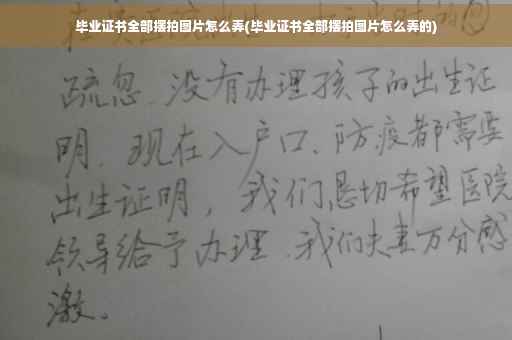 毕业证书全部摆拍图片怎么弄(毕业证书全部摆拍图片怎么弄的)
疏忽、没有办理孩子的出生证
明、现在入户口、防疫都需要
出生证明，我们恳切希望医院
领导给予办理、我们夫妻万分感
激。